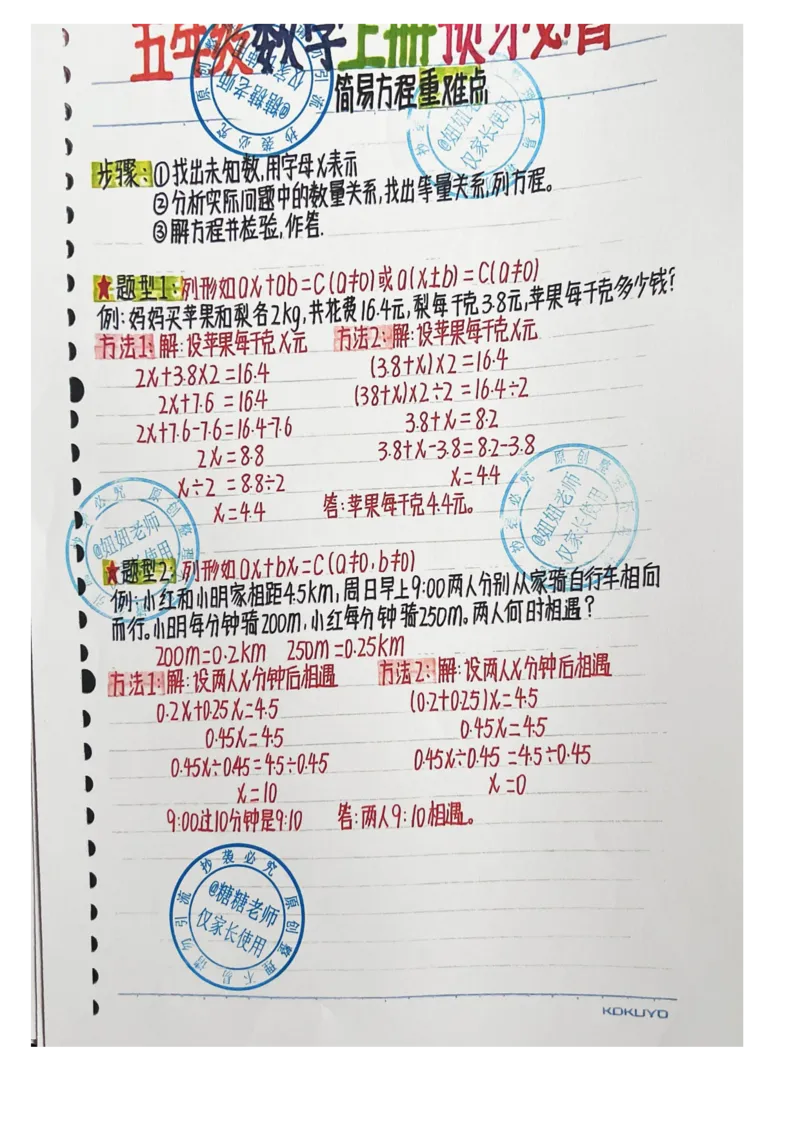 五年级数学上册预习必备
简易方程重难点
步骤:①找出未知数,用字母x表示
②分析实际问题中的数量关系,找出等量关系,列方程。
③解方程并检验,作答.
★题型1:列形如ax+ab=C(a≠0)或a(x±b)=C(a≠0)
例:妈妈买苹果和梨各2kg,共花费16.4元,梨每千克3.8元,苹果每千克多少钱?
方法1:解:设苹果每千克x元 方法2:解:设苹果每千克x元
2x+3.8×2=16.4 (3.8+x)×2=16.4
2x+7.6=16.4 (38+x)×2÷2=16.4÷2
2x+7.6-7.6=16.4-7.6 3.8+x=8.2
2x=8.8 3.8+x-3.8=8.2-3.8
x÷2=8.8÷2 x=4.4
x=4.4 答:苹果每千克4.4元。
★题型2:列形如ax+bx=C(a≠0,b≠0)
例:小红和小明家相距4.5km,周日早上9:00两人分别从家骑自行车相向
而行。小明每分钟骑200m,小红每分钟骑250m。两人何时相遇?
200m=0.2km 250m=0.25km
方法1:解:设两人x分钟后相遇 方法2:解:设两人x分钟后相遇
0.2x+0.25x=4.5 (0.2+0.25)x=4.5
0.45x=4.5 0.45x=4.5
0.45x÷0.45=4.5÷0.45 0.45x÷0.45=4.5÷0.45
x=10 x=0
9:00过10分钟是9:10 答:两人9:10相遇。
抄袭必究 原创整理不易 请勿引流
@糖糖老师
仅家长使用
@妞妞老师
仅家长使用
KOKUYO